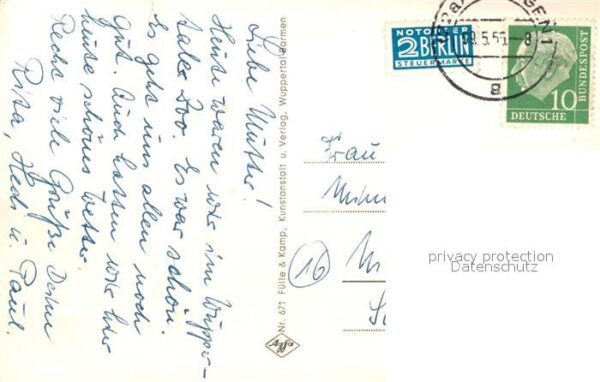 Liebe Mutter!
Heute waren wir im Wupper-
taler Zoo. Es war schön.
Es geht uns allen noch
gut. Auch hatten wir hier
heute schönes Wetter.
Recht viele Grüße Deine
Risa, Hedi u. Paul.
Nr. 671 Fülle & Kamp, Kunstanstalt u. Verlag, Wuppertal-Barmen
Agfa
NOTOPFER
2 BERLIN
STEUERMARKE
10
DEUTSCHE
BUNDESPOST
8
g
Frau
16
privacy protection
Datenschutz